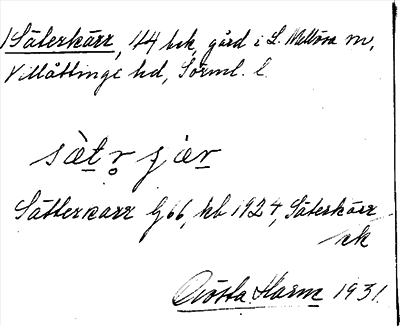 1 Säterkärr, 44 bek, gård i L. Mellösa sn,
Villåttinge hd, Sörml. l.
sæ̀tr̥ɟær
Sätterkarr G66, kb 1924, Säterkärr
ek
Gösta Harm 1931.